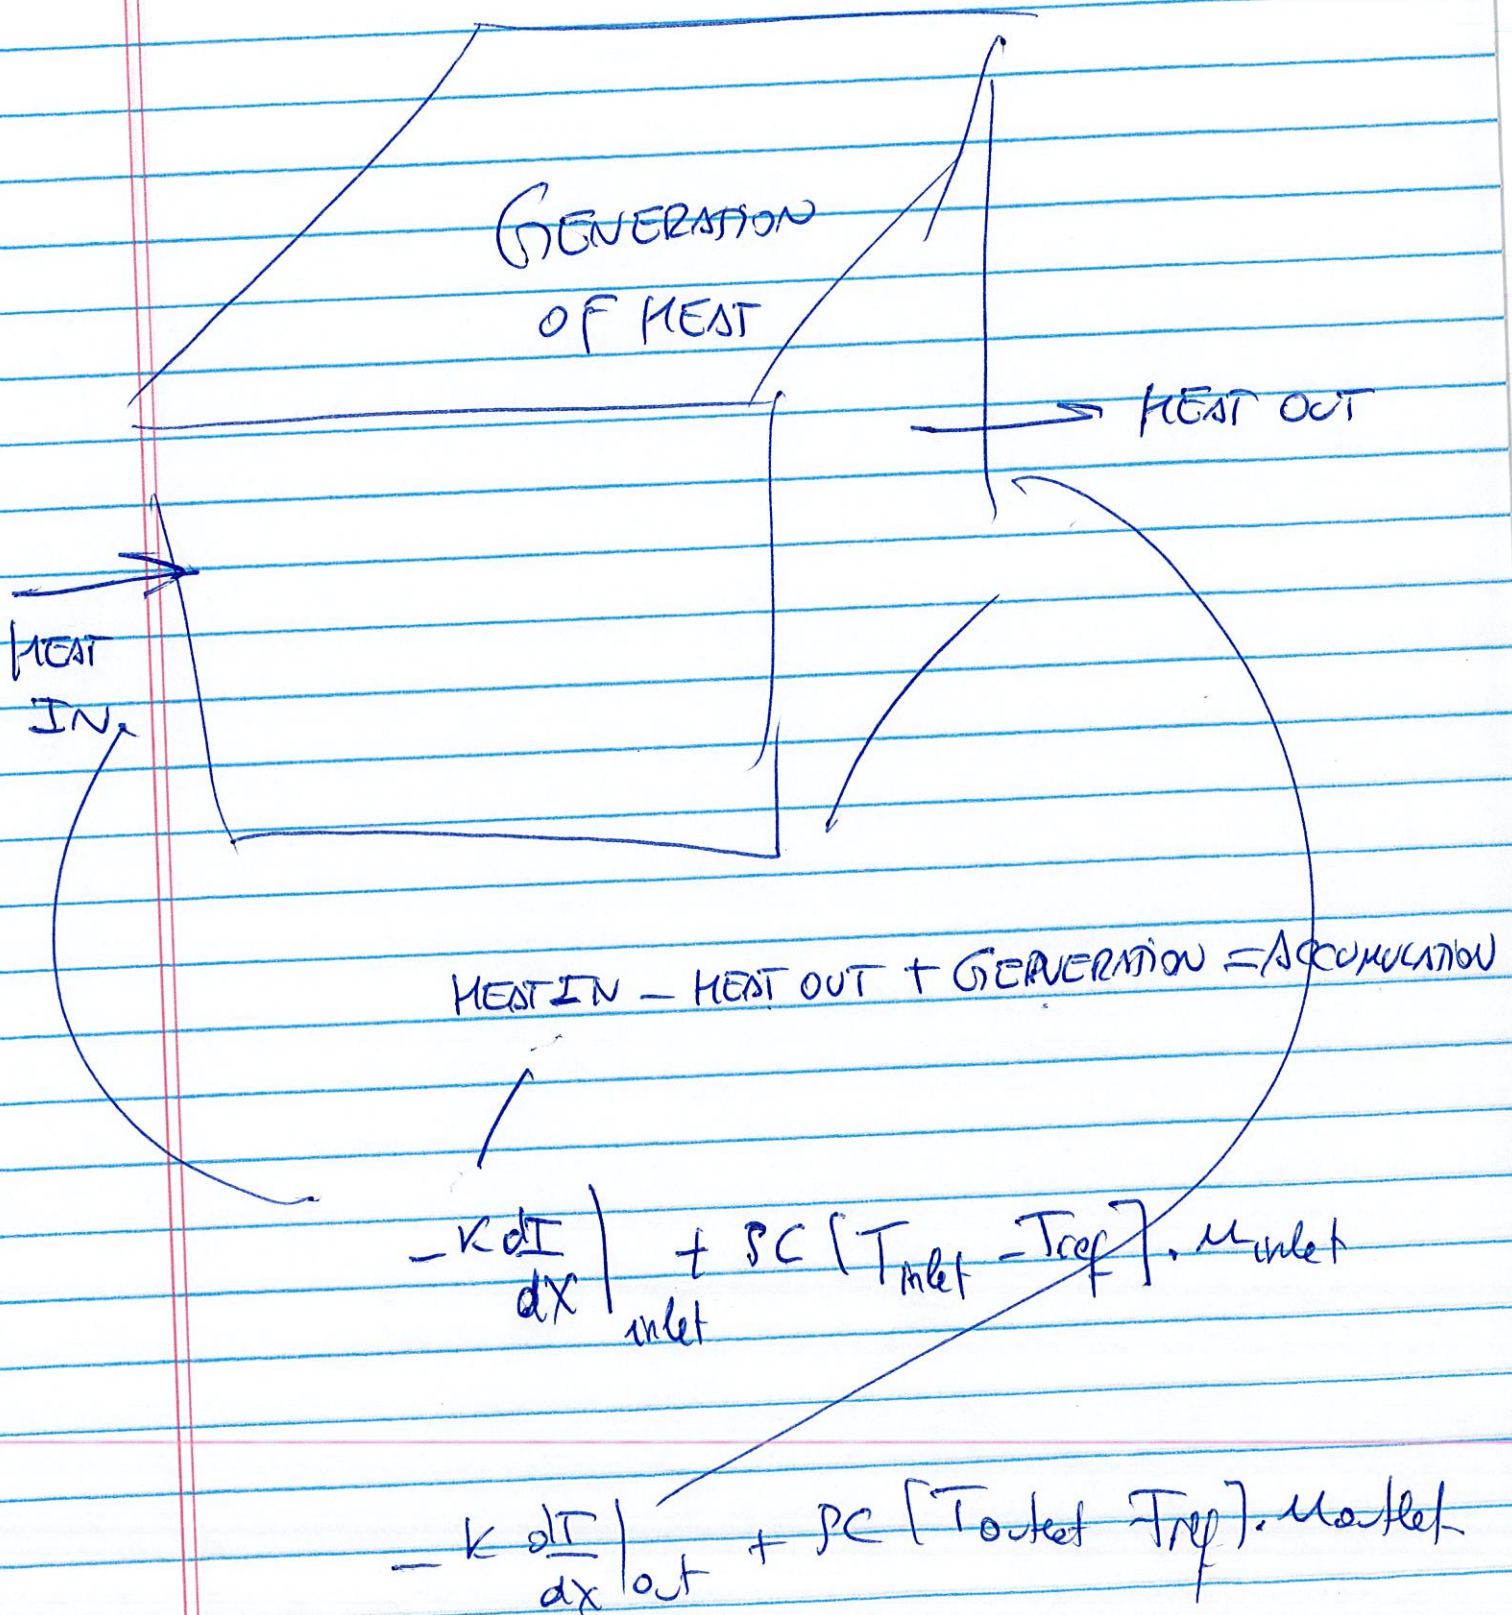 GENERATION
OF HEAT
HEAT OUT
HEAT
IN
HEAT IN - HEAT OUT + GENERATION = ACCUMULATION
-K dT/dX | inlet + ρC [Tinlet - Tref] . uinlet
-K dT/dx | out + ρC [Toutlet - Tref] . uoutlet